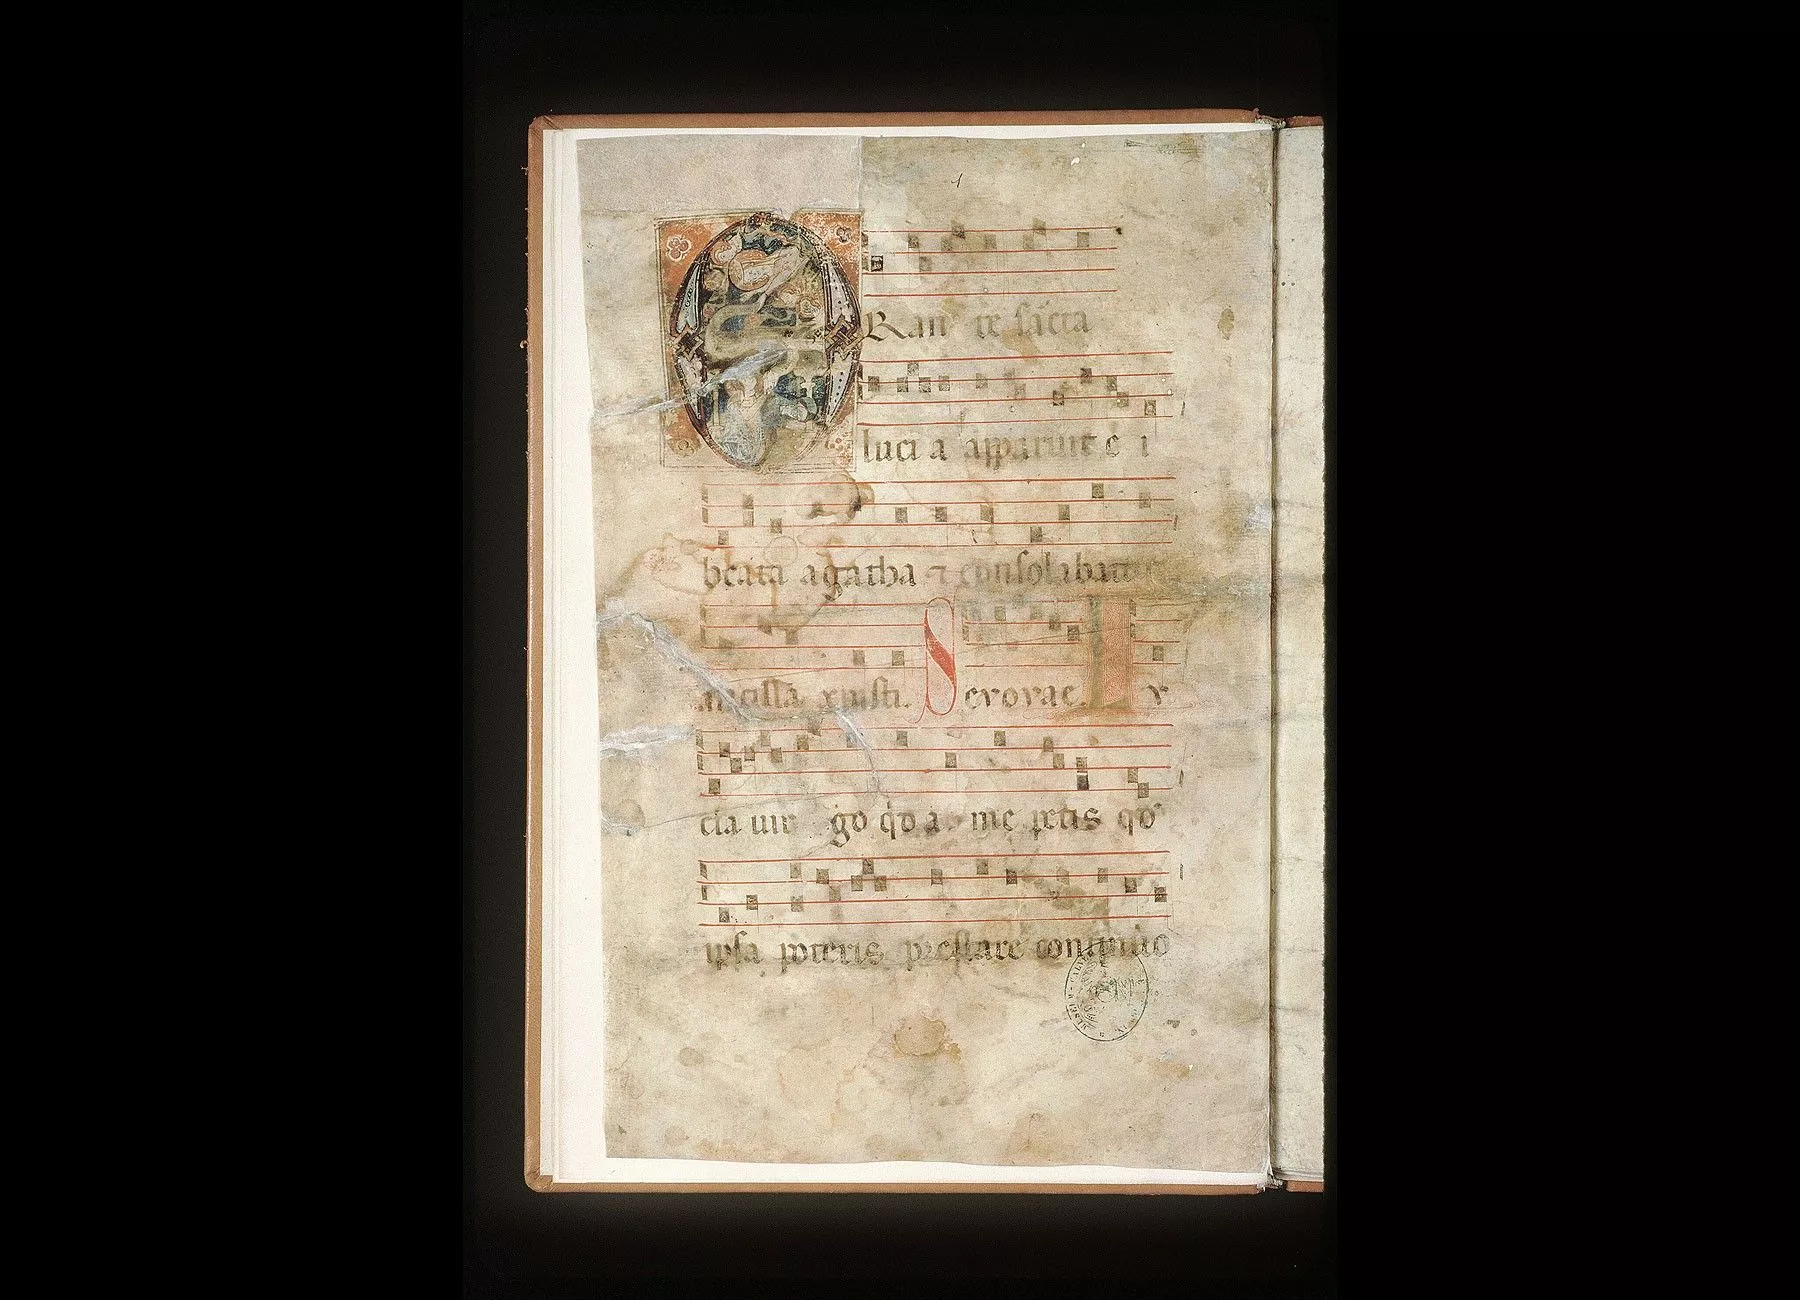 1
ORan te sācta
luci a apparuit ei
beata agatha ⁊ consolabatur
ancillā xpisti. Sevovae. Lv
cia uir go qd a me petis qd
ipsa poteris prestare continuo